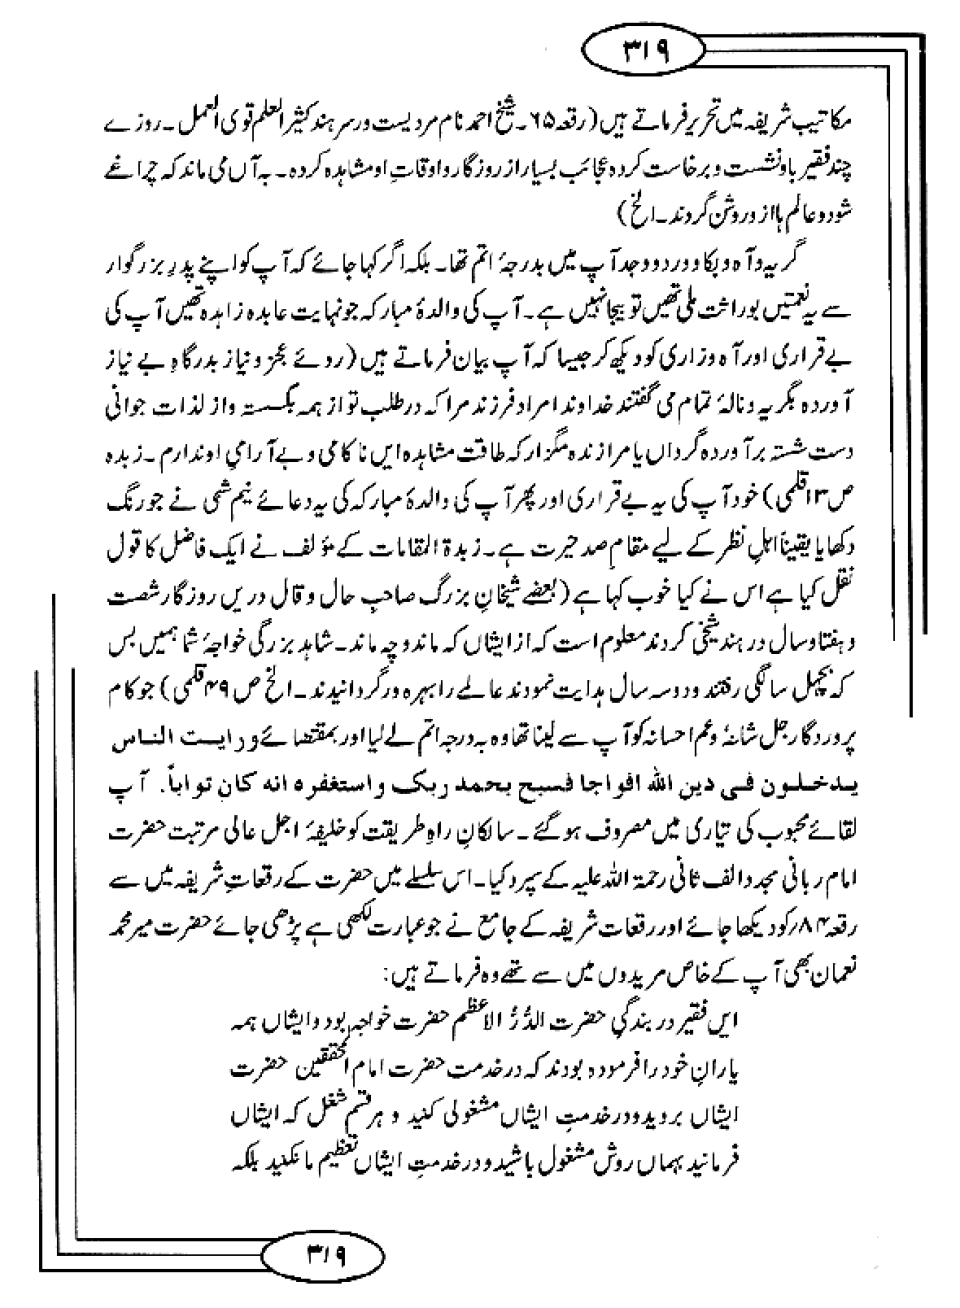 ۳۱۹
مکاتیب شریفہ میں تحریر فرماتے ہیں (رقعہ ۶۵۔ شیخ احمد نام مردیست ورسر ہند کثیر العلم قوی العمل۔ روزے
چند فقیر باو نشست و برخاست کردہ عجائب بسیار از روزگار و اوقاتِ او مشاہدہ کردہ۔ بہ آں می ماند کہ چراغے
شود و عالم ہا از و روشن گردند۔ الخ)
گریہ و آہ و بکا و درد و وجد آپ میں بدرجۂ اتم تھا۔ بلکہ اگر کہا جائے کہ آپ کو اپنے پدرِ بزرگوار
سے یہ نعمتیں بوراثت ملی تھیں تو بیجا نہیں ہے۔ آپ کی والدۂ مبارکہ جو نہایت عابدہ زاہدہ تھیں آپ کی
بے قراری اور آہ وزاری کو دیکھ کر جیسا کہ آپ بیان فرماتے ہیں (روئے عجز و نیاز بدرگاہِ بے نیاز
آوردہ بگریہ و نالۂ تمام می گفتند خداوندا مراد فرزند مرا کہ در طلب تو از ہمہ بگسستہ و از لذات جوانی
دست شستہ برآوردہ گرداں یا مرا زندہ مگزار کہ طاقت مشاہدہ ایں ناکامی و بے آرامیِ او ندارم۔ زبدہ
ص ۱۳ قلمی) خود آپ کی یہ بے قراری اور پھر آپ کی والدہ مبارکہ کی یہ دعائے نیم شبی نے جو رنگ
دکھایا یقیناً اہلِ نظر کے لیے مقامِ صد حیرت ہے۔ زبدۃ المقامات کے مؤلف نے ایک فاضل کا قول
نقل کیا ہے اس نے کیا خوب کہا ہے (بعضے شیخانِ بزرگ صاحبِ حال و قال دریں روزگار شصت
و ہفتاد سال در ہند شیخی کردند معلوم است کہ از ایشاں کہ ماند و چہ ماند۔ شاہد بزرگی خواجۂ شما ہمیں بس
کہ بچہل سالگی رفتند و دو سہ سال ہدایت نمودند عالمے را بہرہ ور گردانیدند۔ الخ ص ۴۹ قلمی) جو کام
پروردگار جل شانہٗ و عم احسانہ کو آپ سے لینا تھا وہ بہ درجہ اتم لے لیا اور بمقتضائے ورایت الناس
یدخلون فی دین اللہ افواجا فسبح بحمد ربک و استغفرہ انہ کان تواباً۔ آپ
لقائے محبوب کی تیاری میں مصروف ہو گئے۔ سالکانِ راہِ طریقت کو خلیفۂ اجل عالی مرتبت حضرت
امام ربانی مجدد الف ثانی رحمۃ اللہ علیہ کے سپرد کیا۔ اس سلسلے میں حضرت کے رقعاتِ شریفہ میں سے
رقعہ ۸۴ر کو دیکھا جائے اور رقعات شریفہ کے جامع نے جو عبارت لکھی ہے پڑھی جائے حضرت میر محمد
نعمان بھی آپ کے خاص مریدوں میں سے تھے وہ فرماتے ہیں:
ایں فقیر در بندگیِ حضرت الدُّرُّ الاعظم حضرت خواجہ بود و ایشاں ہمہ
یارانِ خود را فرمودہ بودند کہ در خدمت حضرت امام المحققین حضرت
ایشاں بروید و در خدمتِ ایشاں مشغولی کنید و ہر قسم شغل کہ ایشاں
فرمانید بہماں روش مشغول باشید و در خدمتِ ایشاں تعظیم ما نکنید بلکہ
۳۱۹